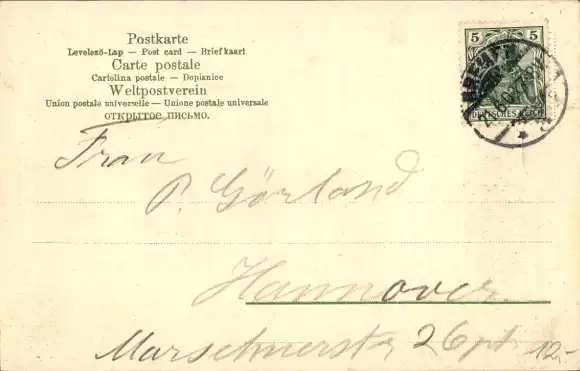 Postkarte
Levelező-Lap — Post card — Briefkaart
Carte postale
Cartolina postale — Dopisnice
Weltpostverein
Union postale universelle — Unione postale universale
ОТКРЫТОЕ ПИСЬМО.
5 5
BREMEN
DEUTSCHES REICH
Frau
P. Görland
Hannover
26
12,-